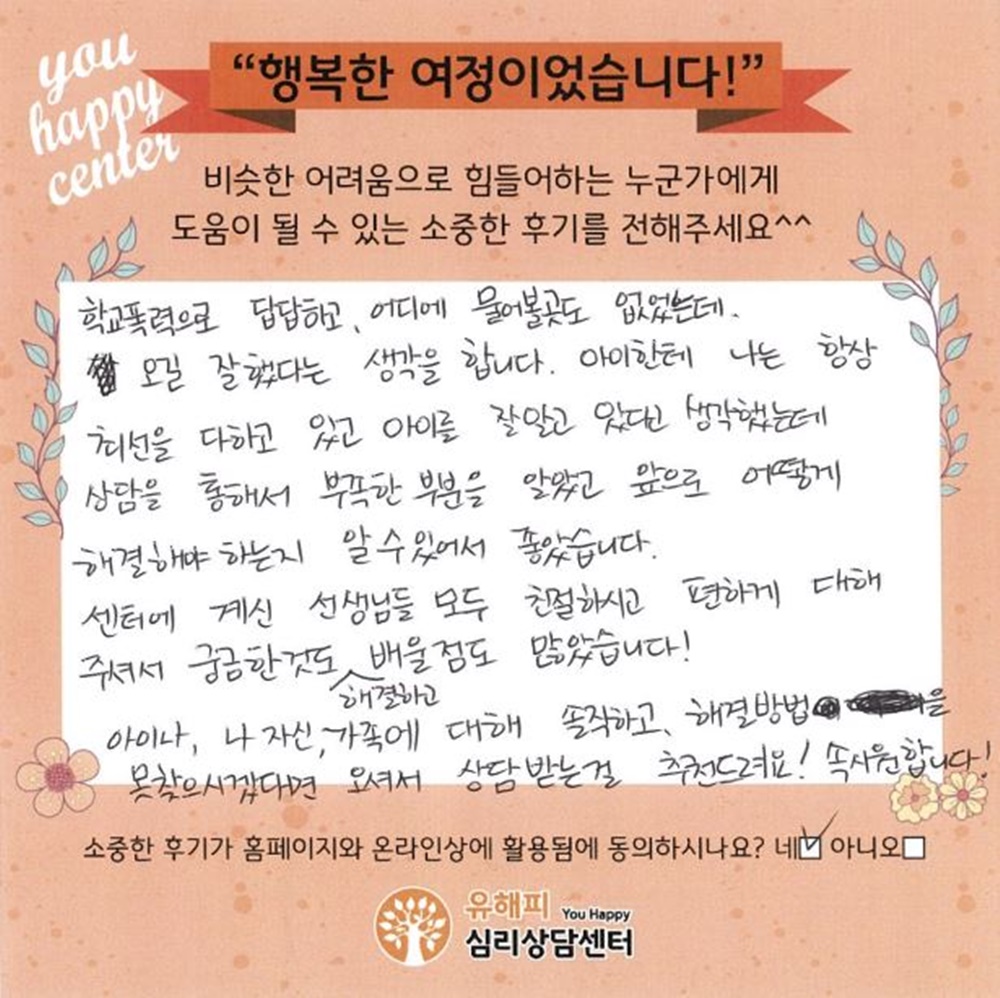 you
happy
center
“행복한 여정이었습니다!”
비슷한 어려움으로 힘들어하는 누군가에게
도움이 될 수 있는 소중한 후기를 전해주세요^^
학교폭력으로 답답하고, 어디에 물어볼곳도 없었는데.
오길 잘했다는 생각을 합니다. 아이한테 나는 항상
최선을 다하고 있고 아이를 잘알고 있다고 생각했는데
상담을 통해서 부족한 부분을 알았고 앞으로 어떻게
해결해야 하는지 알 수 있어서 좋았습니다.
센터에 계신 선생님들 모두 친절하시고 편하게 대해
주셔서 궁금한것도 해결하고 배울점도 많았습니다!
아이나, 나 자신, 가족에 대해 솔직하고, 해결방법을
못찾으시겠다면 오셔서 상담받는걸 추천드려요! 속시원합니다!
소중한 후기가 홈페이지와 온라인상에 활용됨에 동의하시나요? 네 아니오
유해피 You Happy
심리상담센터